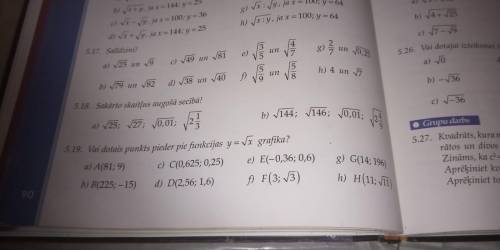 b) √x+y, ja x=144; y=25
c) √x − √y, ja x=100; y=36
d) √x + √y, ja x=144; y=25
g) √x : √y, ja x=100; y=64
h) √x:y, ja x=100; y=64
5.17. Salīdzini!
a) √25 un √9 c) √49 un √81 e) √3/5 un √4/7 g) 2/7 un √0,25
b) √79 un √82 d) √38 un √40 f) √5/9 un √5/8 h) 4 un √7
5.18. Sakārto skaitļus augošā secībā!
a) √25; √27; √0,01; √2 1/3 b) √144; √146; √0,01; √2 4/5
5.19. Vai dotais punkts pieder pie funkcijas y=√x grafika?
a) A(81; 9) c) C(0,625; 0,25) e) E(−0,36; 0,6) g) G(14; 196)
b) B(225; −15) d) D(2,56; 1,6) f) F(3; √3) h) H(11; √11)
90
b) √4+√25
c) √7−√9
5.26. Vai dotajai izteiksmei
a) √0
b) −√36
c) √−36
Grupu darbs
5.27. Kvadrāts, kura
rātos un divos
Zināms, ka c²
Aprēķiniet ko
Aprēķiniet to